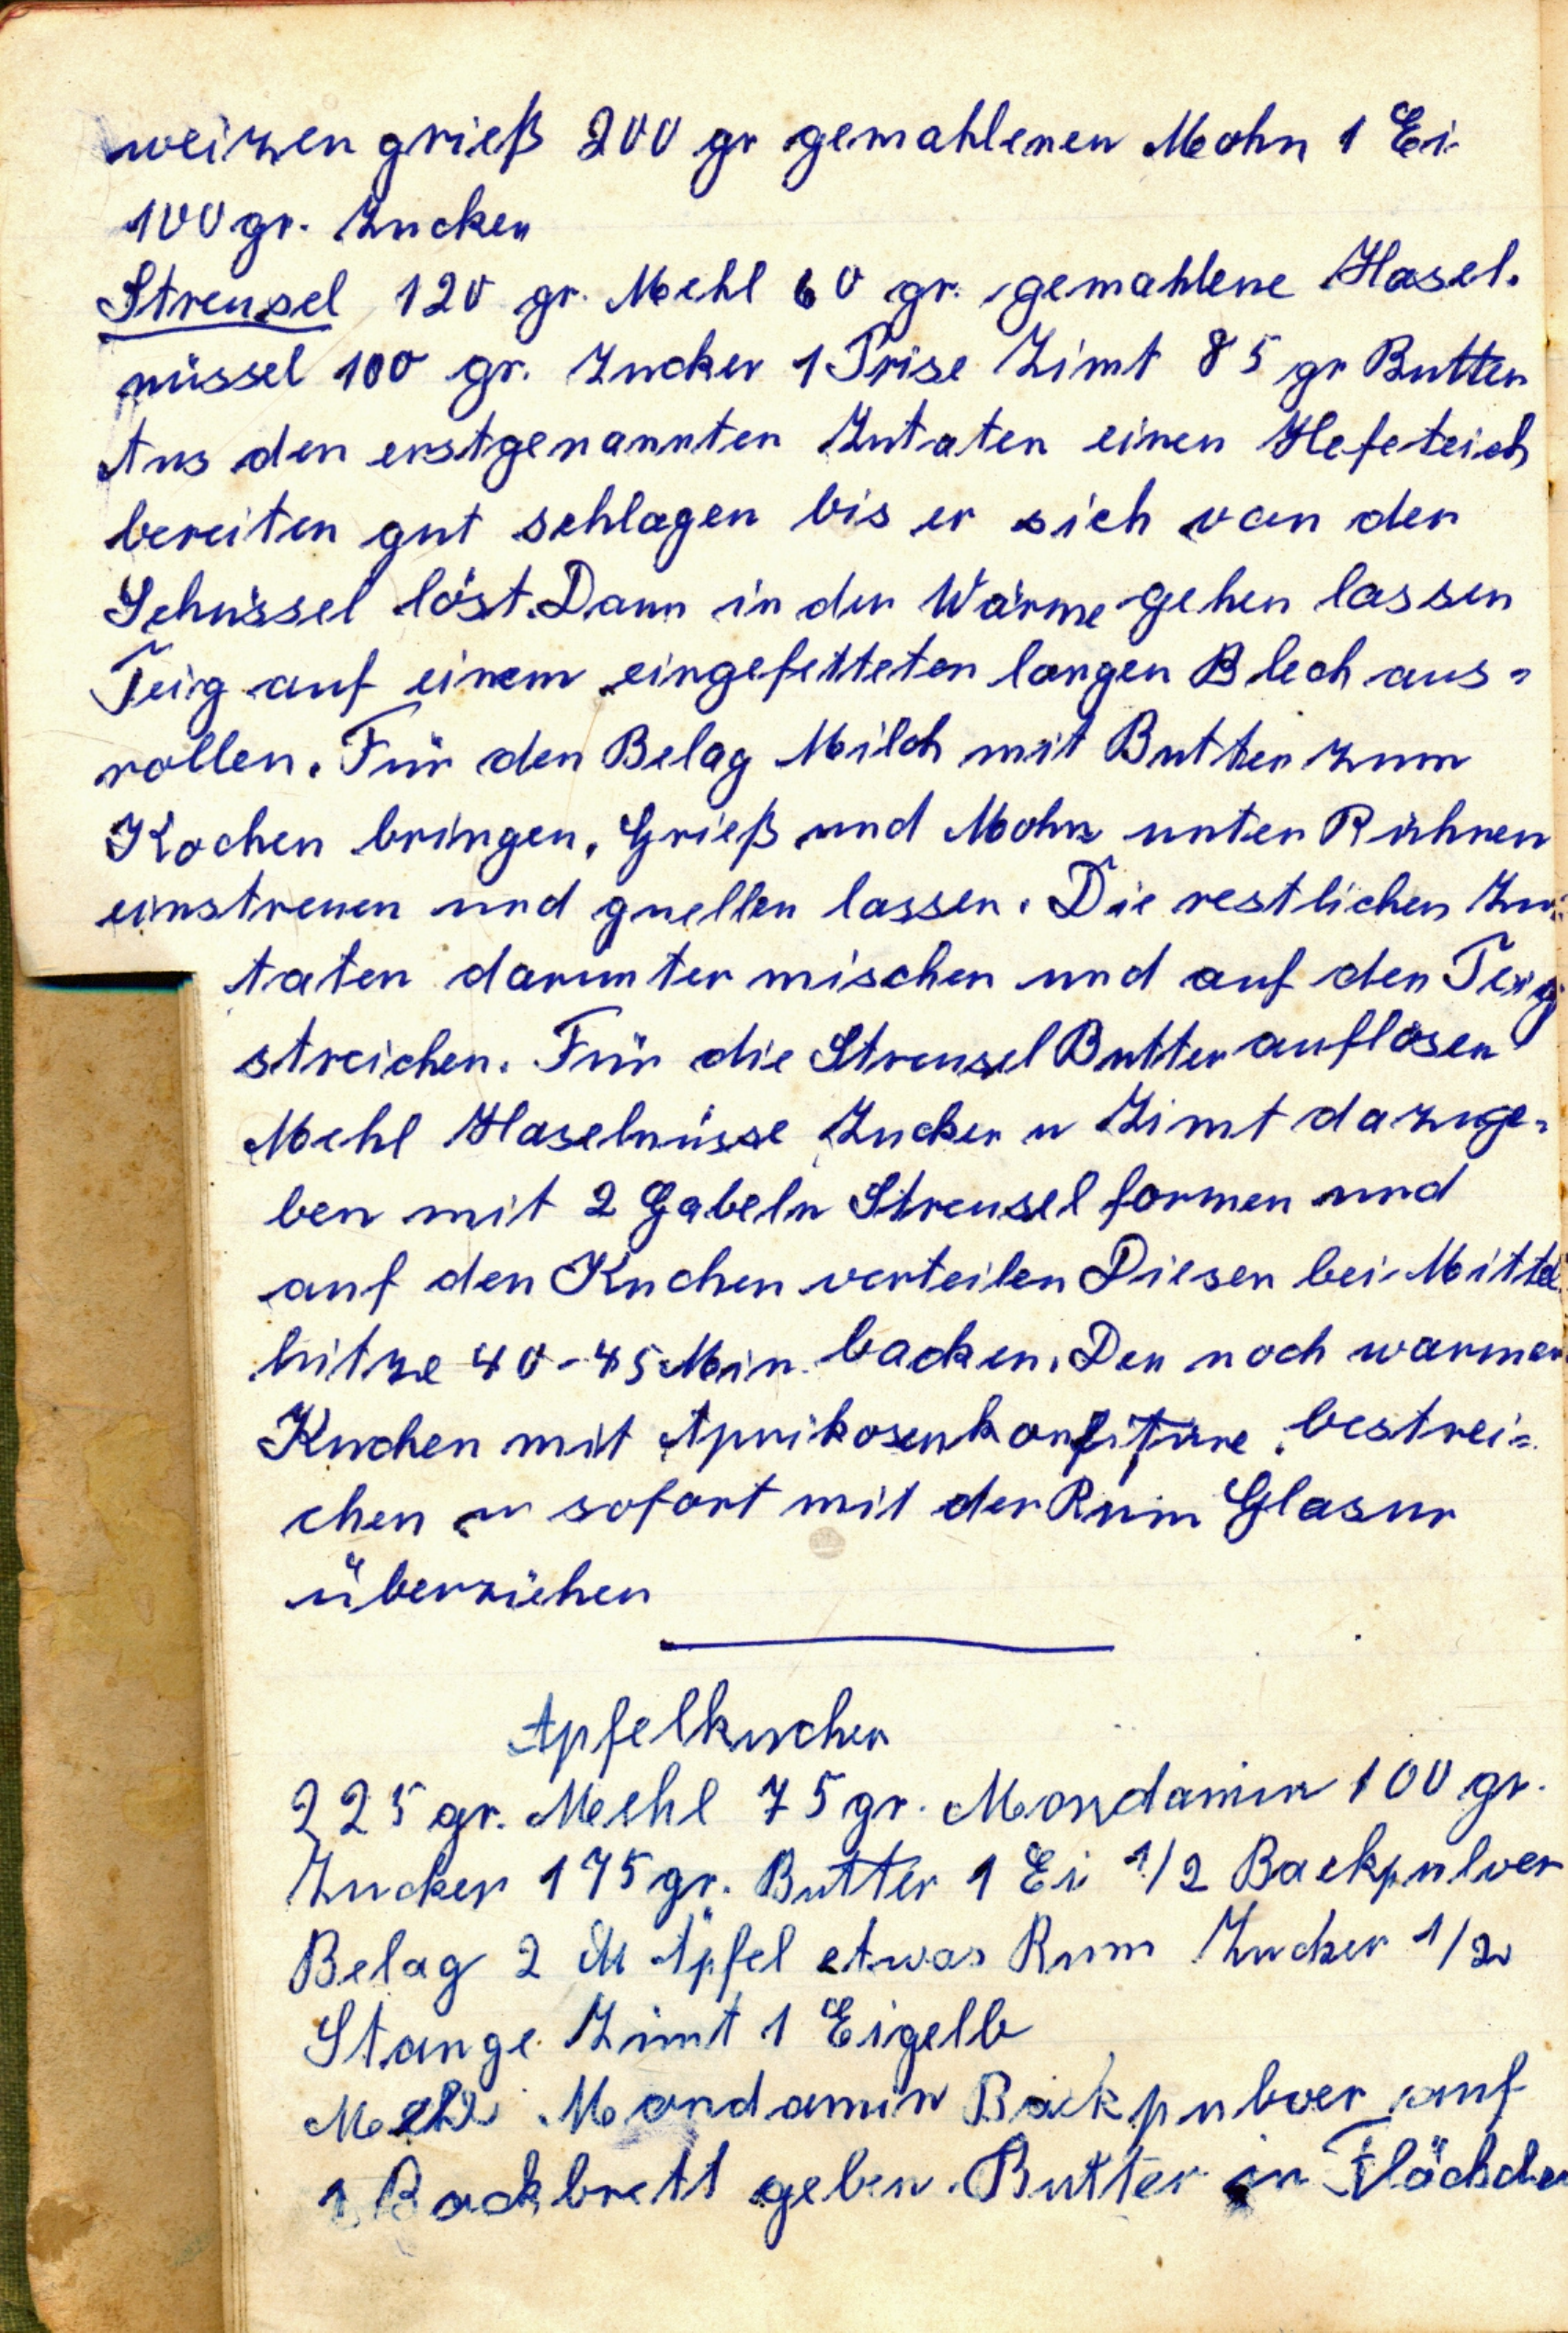 weizengrieß 200 gr gemahlenen Mohn 1 Ei
100 gr. Zucker
Streusel 120 gr. Mehl 60 gr. gemahlene Hasel.
nüssel 100 gr. Zucker 1 Prise Zimt 85 gr Butter
Aus den erstgenannten Zutaten einen Hefeteich
bereiten gut schlagen bis er sich von der
Schüssel löst. Dann in der Wärme gehen lassen
Teig auf einem eingefetteten langen Blech aus=
rollen. Für den Belag Milch mit Butter zum
Kochen bringen. Grieß und Mohn unter Rühren
einstreuen und quellen lassen. Die restlichen Zu=
taten darunter mischen und auf den Teig
streichen. Für die Streusel Butter auflösen
Mehl Haselnüsse Zucker u Zimt dazuge=
ben mit 2 Gabeln Streusel formen und
auf den Kuchen verteilen Diesen bei Mittel
hitze 40-45 Min. backen. Den noch warmen
Kuchen mit Aprikosenkonfitüre bestrei=
chen u sofort mit der Rum Glasur
überziehen
Apfelkuchen
225 gr. Mehl 75 gr. Mondamin 100 gr.
Zucker 175 gr. Butter 1 Ei 1/2 Backpulver
Belag 2 Äpfel etwas Rum Zucker 1/2
Stange Zimt 1 Eigelb
Mehl Mondamin Backpulver auf
1 Backbrett geben. Butter in Flöckchen